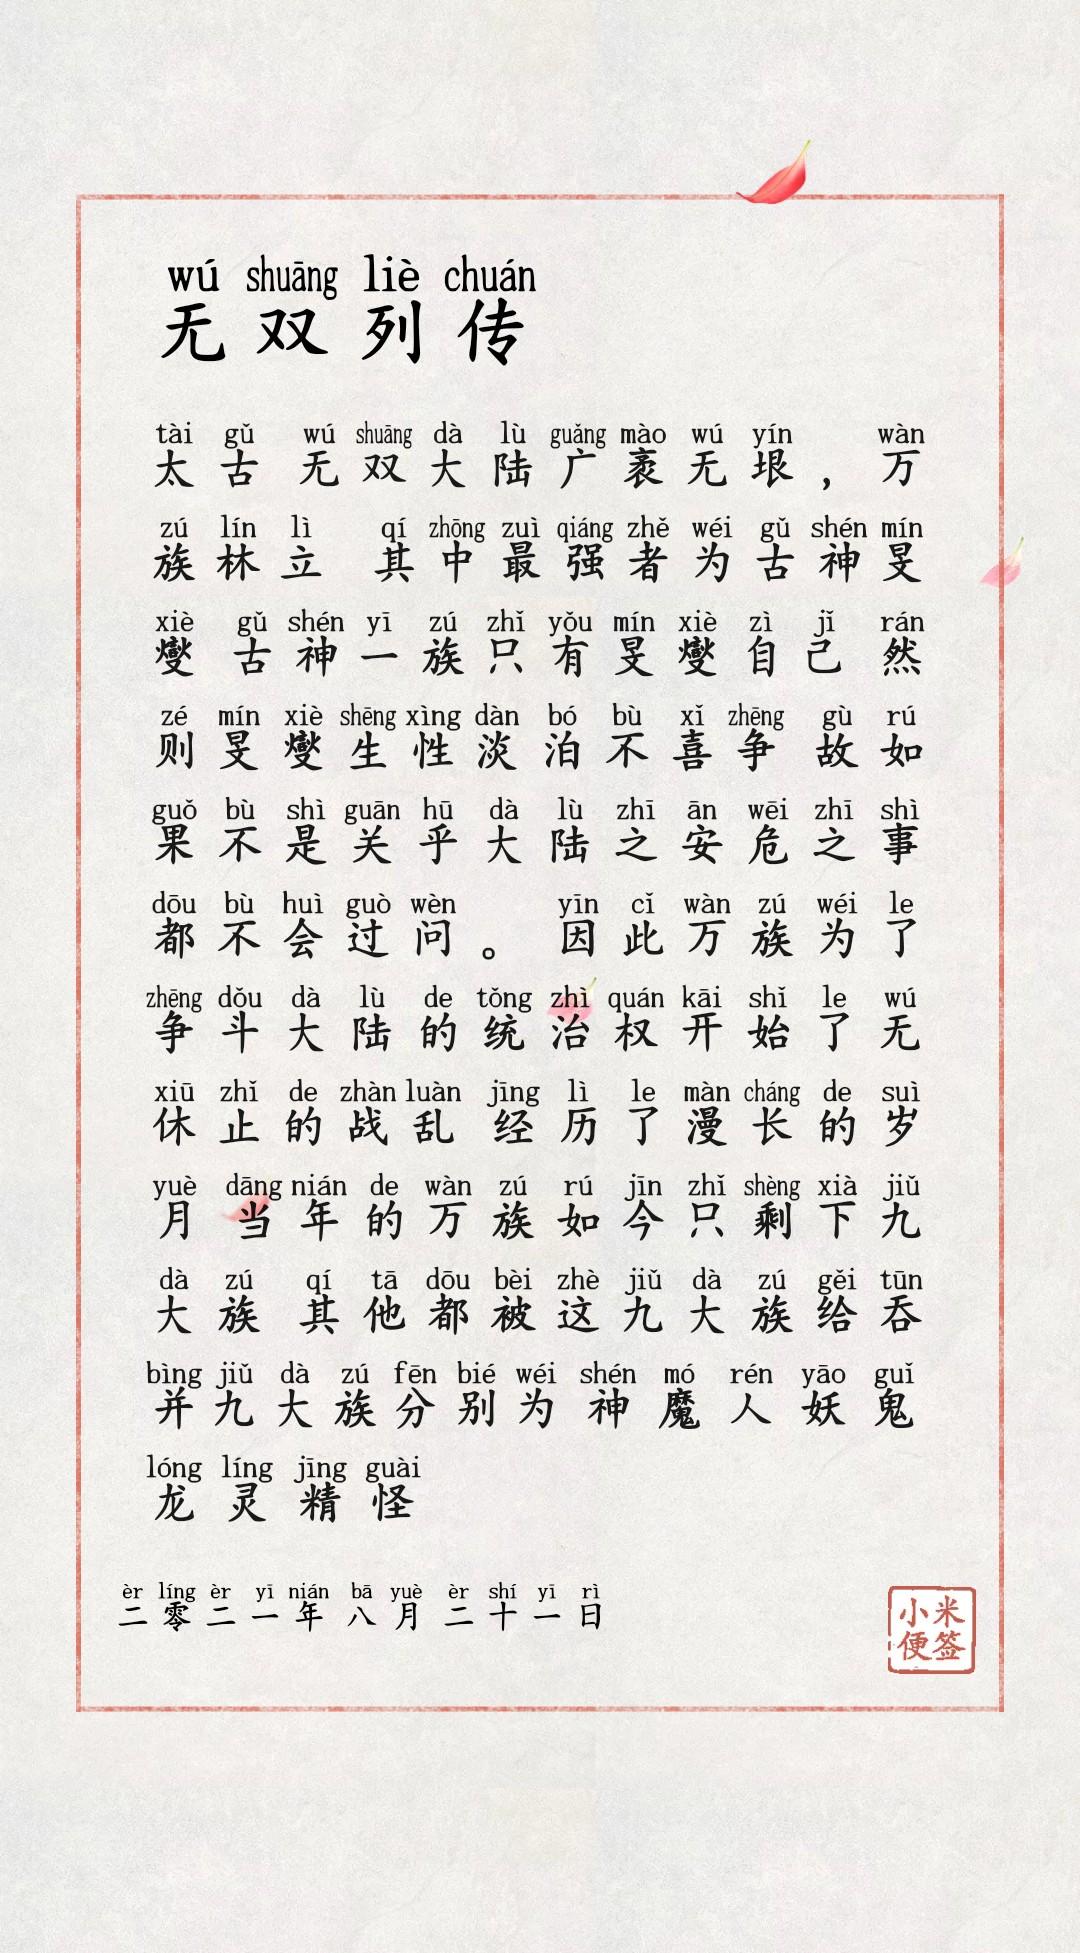 wú shuāng liè chuán
无双列传
tài gǔ wú shuāng dà lù guǎng mào wú yín wàn
太古 无双大陆广袤无垠，万
zú lín lì qí zhōng zuì qiáng zhě wéi gǔ shén mín
族林立 其中最强者为古神旻
xiè gǔ shén yī zú zhǐ yǒu mín xiè zì jǐ rán
燮 古神一族只有旻燮自己 然
zé mín xiè shēng xìng dàn bó bù xǐ zhēng gù rú
则旻燮生性淡泊不喜争 故如
guǒ bù shì guān hū dà lù zhī ān wēi zhī shì
果不是关乎大陆之安危之事
dōu bù huì guò wèn yīn cǐ wàn zú wéi le
都不会过问。 因此万族为了
zhēng dǒu dà lù de tǒng zhì quán kāi shǐ le wú
争斗大陆的统治权开始了无
xiū zhǐ de zhàn luàn jīng lì le màn cháng de suì
休止的战乱 经历了漫长的岁
yuè dāng nián de wàn zú rú jīn zhǐ shèng xià jiǔ
月 当年的万族如今只剩下九
dà zú qí tā dōu bèi zhè jiǔ dà zú gěi tūn
大族 其他都被这九大族给吞
bìng jiǔ dà zú fēn bié wéi shén mó rén yāo guǐ
并九大族分别为 神 魔 人 妖 鬼
lóng líng jīng guài
龙 灵 精 怪
èr líng èr yī nián bā yuè èr shí yī rì
二零二一年 八月 二十一日
小米
便签